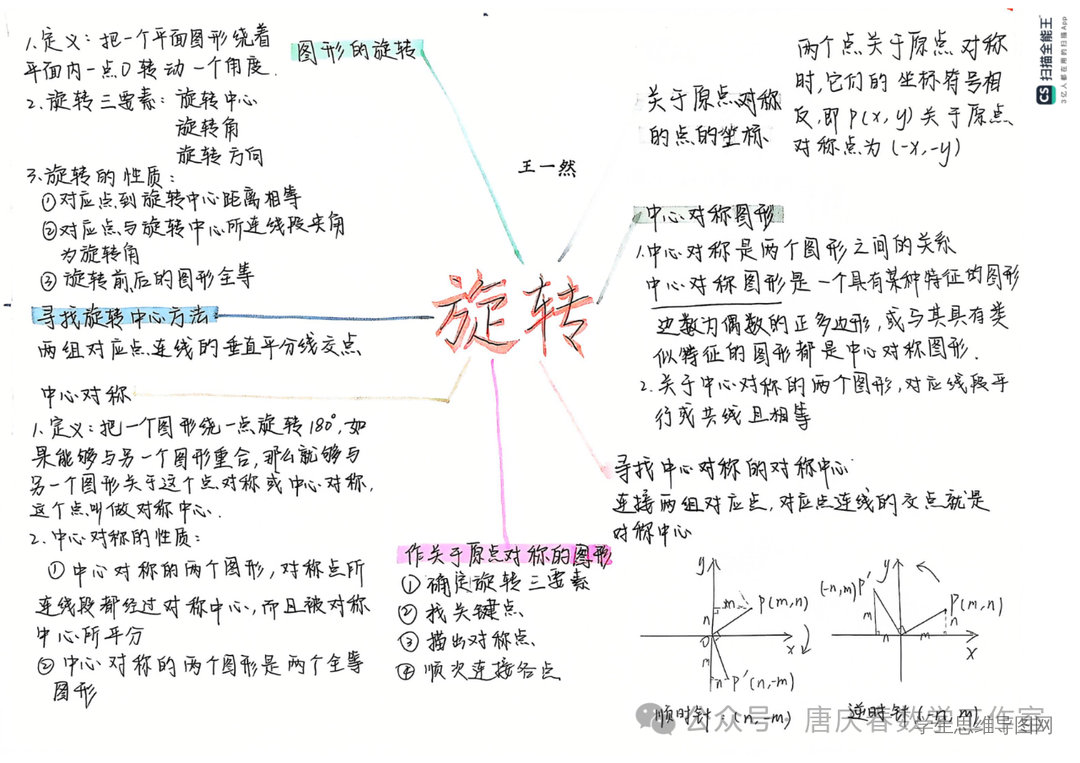 图形的旋转
1.定义：把一个平面图形绕着
平面内一点O转动一个角度.
2.旋转三要素：旋转中心
旋转角
旋转方向
3.旋转的性质：
①对应点到旋转中心距离相等
②对应点与旋转中心所连线段夹角
为旋转角
③旋转前后的图形全等
寻找旋转中心方法
两组对应点连线的垂直平分线交点
中心对称
1.定义：把一个图形绕一点旋转180°,如
果能够与另一个图形重合,那么就够与
另一个图形关于这个点对称或中心对称,
这个点叫做对称中心.
2.中心对称的性质：
①中心对称的两个图形,对称点所
连线段都经过对称中心,而且被对称
中心所平分
②中心对称的两个图形是两个全等
图形
王一然
旋转
作关于原点对称的图形
①确定旋转三要素
②找关键点
③描出对称点
④顺次连接各点
关于原点对称
的点的坐标
两个点关于原点对称
时,它们的坐标符号相
反,即P(x,y)关于原点
对称点为(-x,-y)
中心对称图形
1.中心对称是两个图形之间的关系
中心对称图形是一个具有某种特征的图形
边数为偶数的正多边形,或与其具有类
似特征的图形都是中心对称图形.
2.关于中心对称的两个图形,对应线段平
行或共线且相等
寻找中心对称的对称中心
连接两组对应点,对应点连线的交点就是
对称中心
y
m
P(m,n)
n
O
x
m
n
P'(n,-m)
顺时针：(n,-m)
y
(-n,m)P'
P(m,n)
m
n
n
m
x
逆时针(-n,m)
CS 扫描全能王
3亿人都在用的扫描App
公众号·唐庆春数学工作室
学生思维导图网